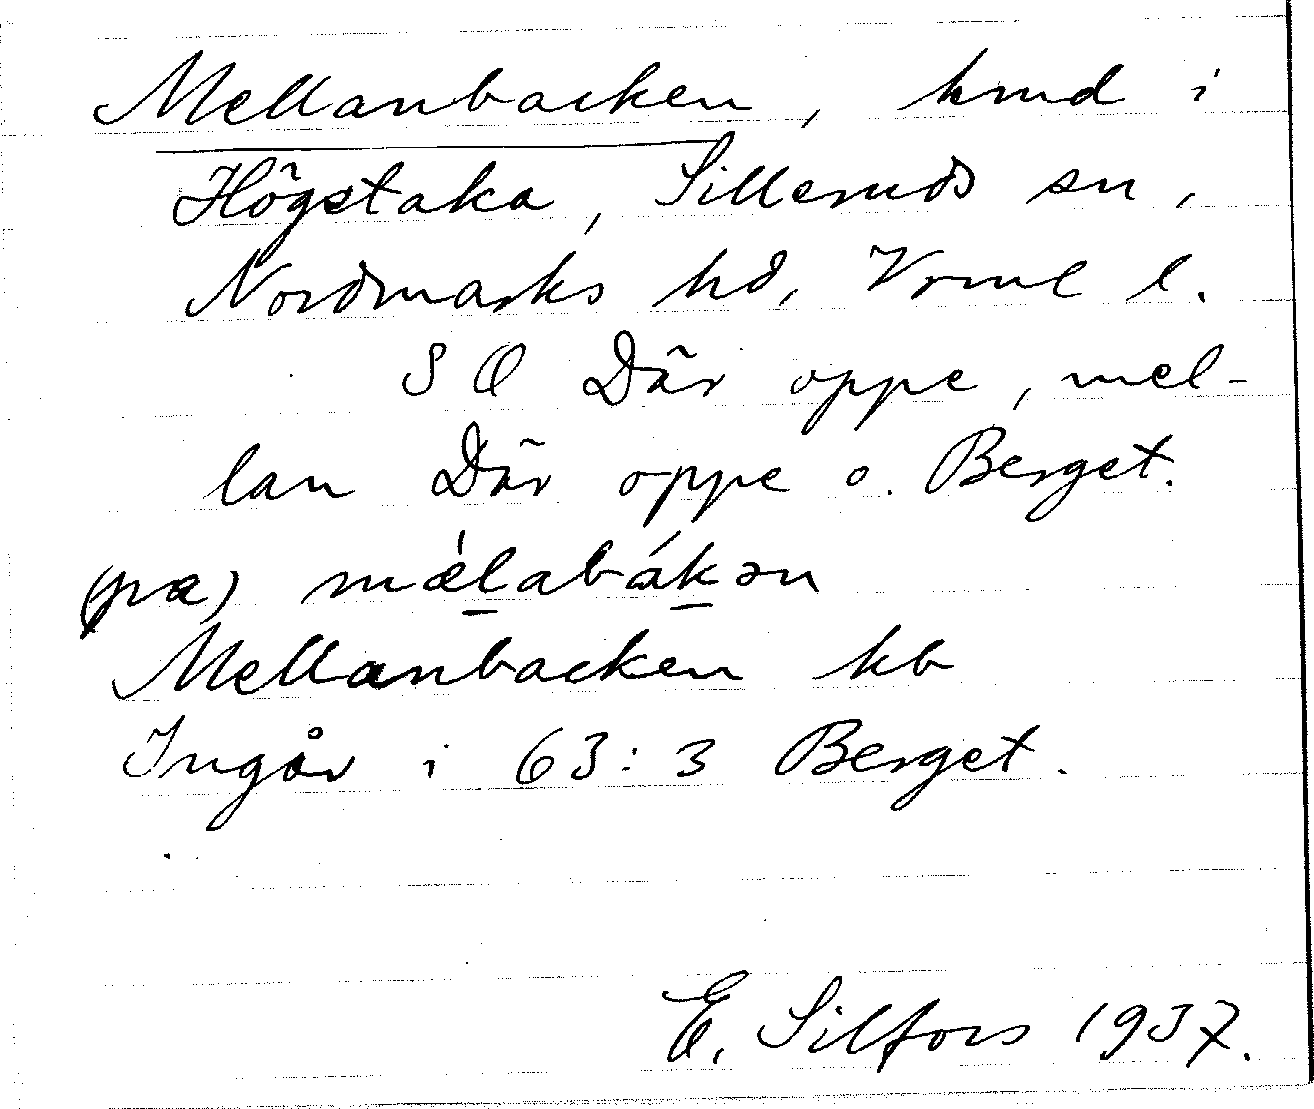 Mellanbacken, hmd i
Högstaka, Silleruds sn,
Nordmarks hd, Vrml l.
S O Där oppe, mel-
lan Där oppe o. Berget.
(pa) mǽlabákən
Mellanbacken kb
Ingår i 63:3 Berget.
E. Silfors 1937.